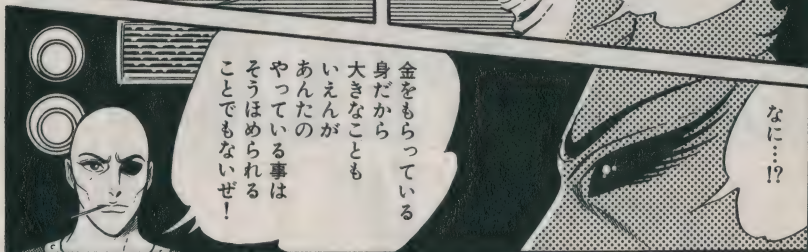 なに…!?
金をもらっている
身だから
大きなことも
いえんが
あんたの
やっている事は
そうほめられる
ことでもないぜ！